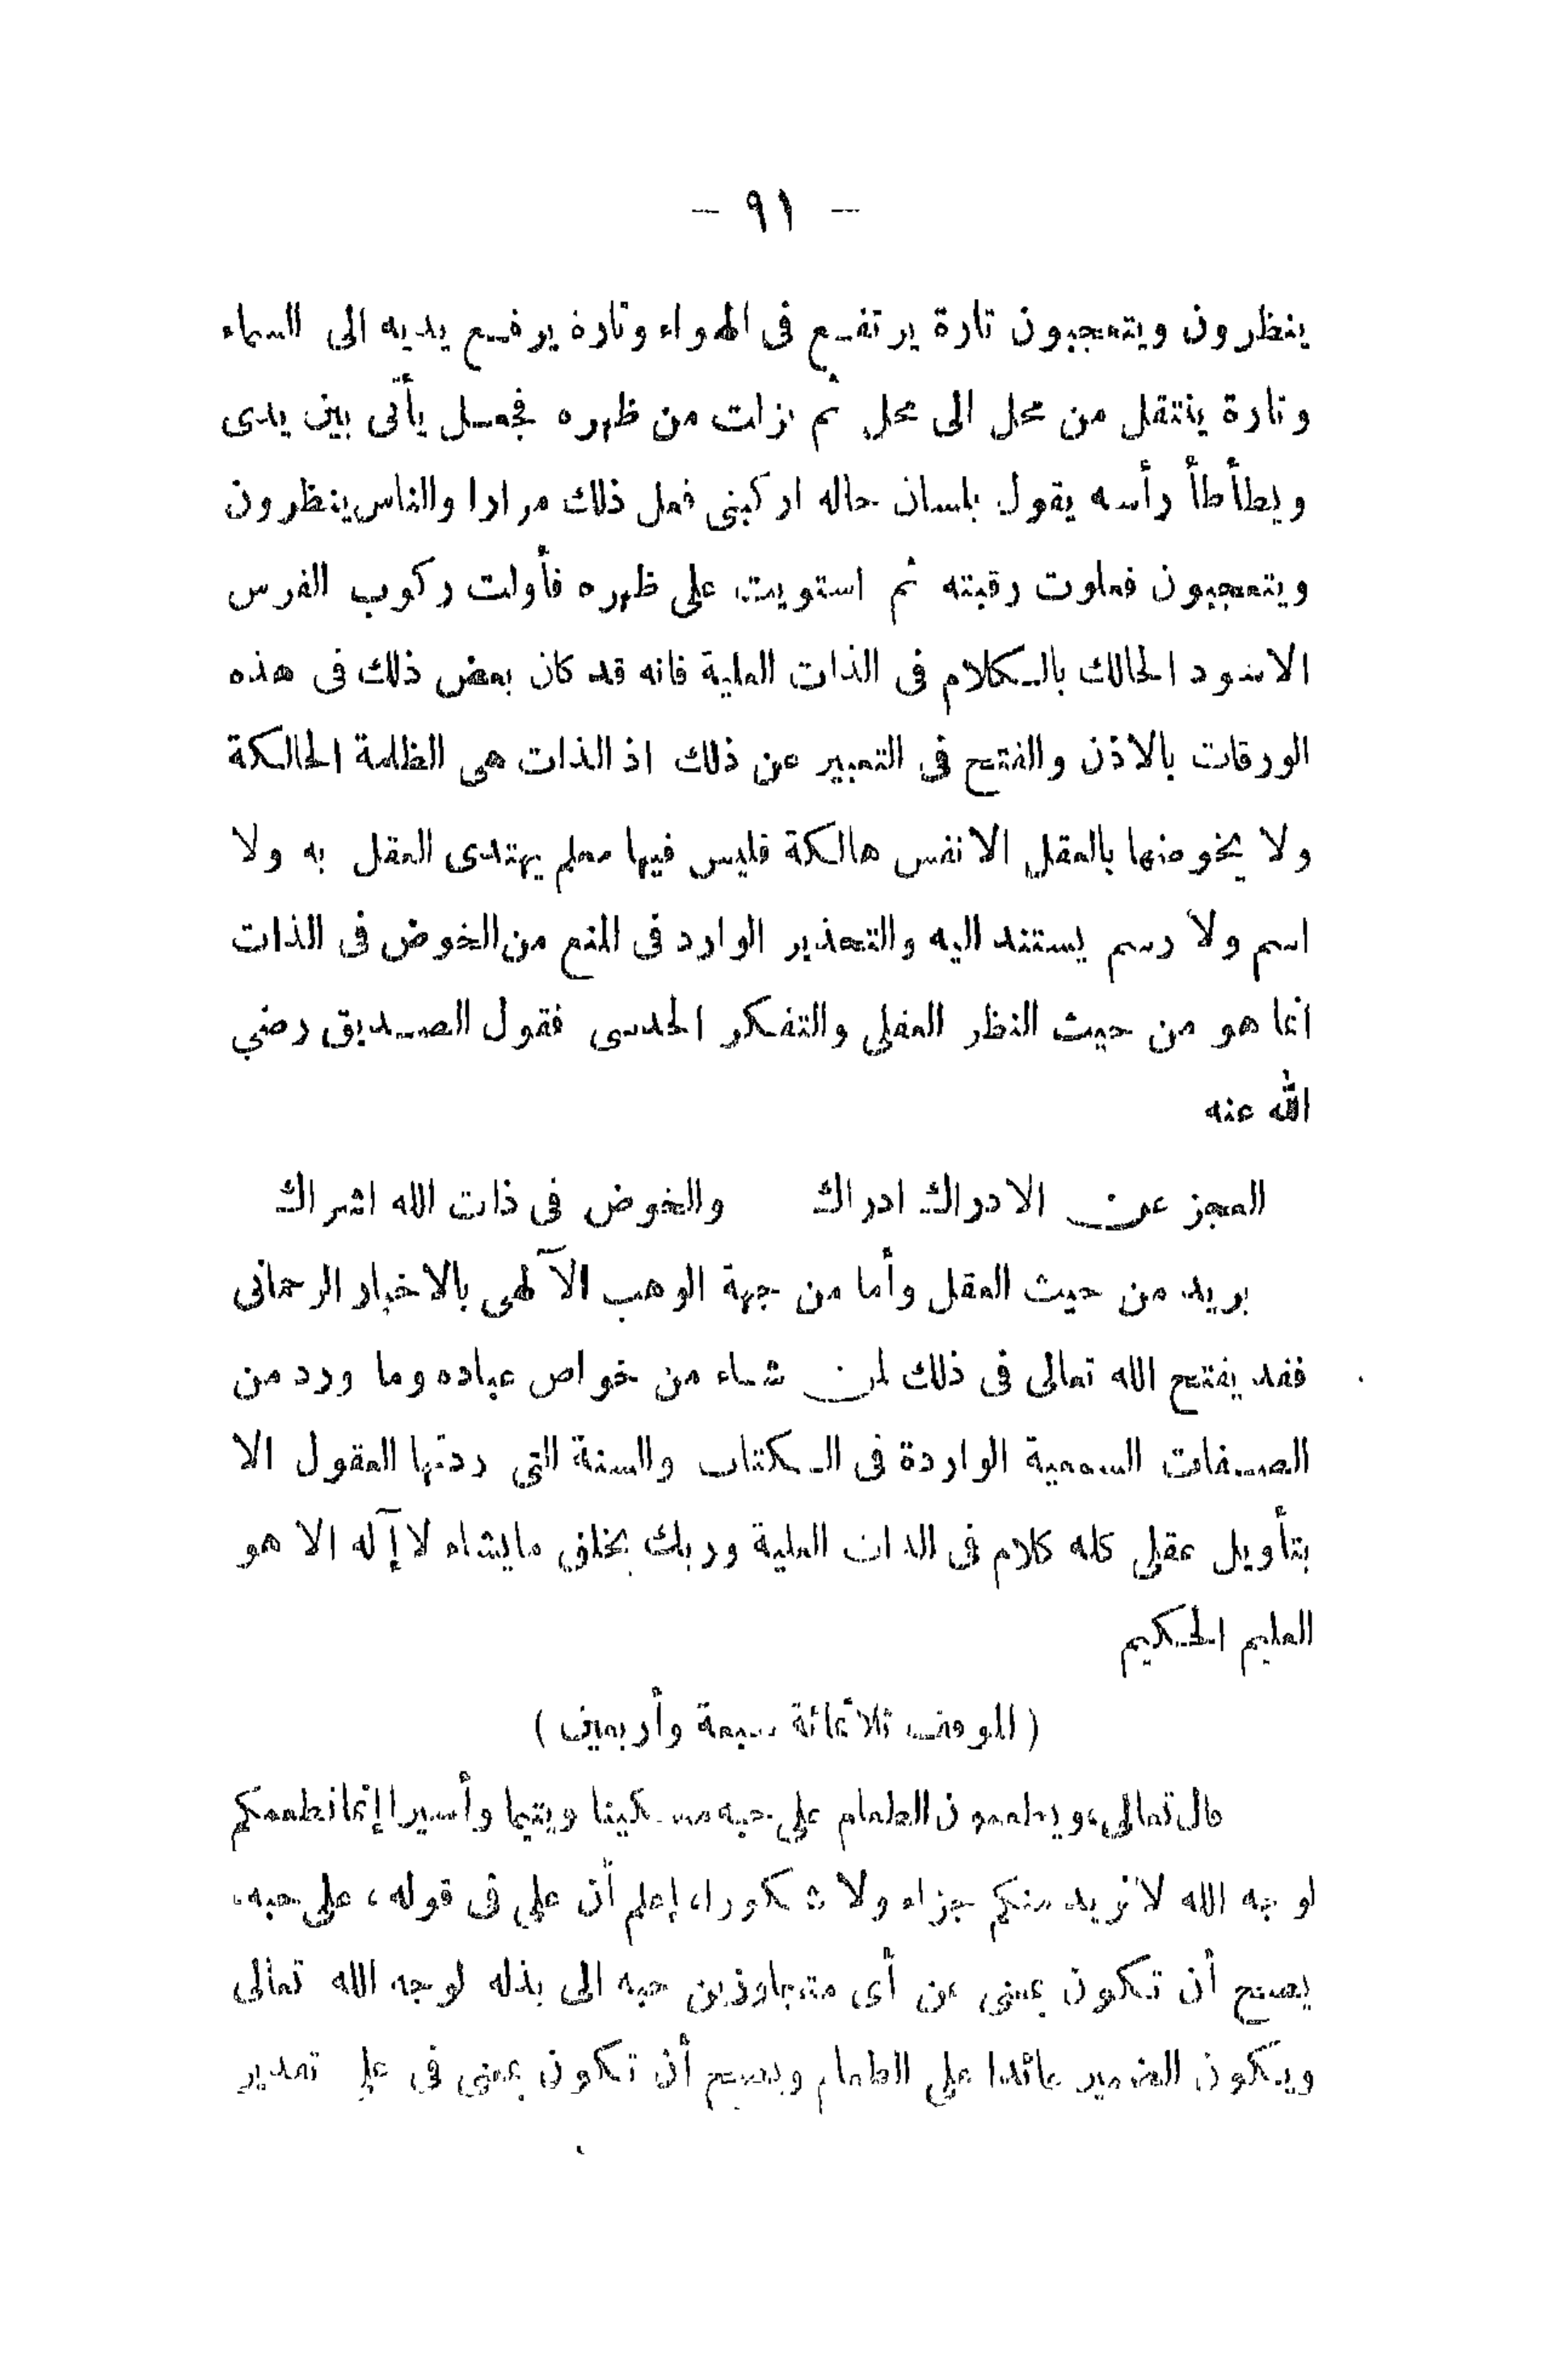 — ٩١ —
ينظرون ويتعجبون تارة يرتفع فى الهواء وتارة يرفع يديه الى السماء
وتارة ينتقل من محل الى محل ثم نزلت من ظهره فجعل يأتى بين يدى
ويطأطأ رأسه يقول بلسان حاله اركبنى فعل ذلك مرارا والناس ينظرون
ويتعجبون فعلوت رقبته ثم استويت على ظهره فأولت ركوب الفرس
الاسود الحالك بالكلام فى الذات العلية فانه قد كان بعض ذلك فى هذه
الورقات بالاذن والفتح فى التعبير عن ذلك اذ الذات هى الظلمة الحالكة
ولا يخوضها بالعقل الا نفس هالكة فليس فيها معلم يهتدى العقل به ولا
اسم ولا رسم يستند اليه والتحذير الوارد فى المنع من الخوض فى الذات
انما هو من حيث النظر العقلى والتفكر الحدسى فقول الصديق رضي
الله عنه
العجز عن الادراك ادراك والخوض فى ذات الله اشراك
يريد من حيث العقل وأما من جهة الوهب الآلهى بالاخبار الرحمانى
فقد يفتح الله تعالى فى ذلك لمن شاء من خواص عباده وما ورد من
الصفات السمعية الواردة فى الكتاب والسنة التى ردتها العقول الا
بتأويل عقلى كله كلام فى الذات العلية وربك يخلق مايشاء لا إآله الا هو
العليم الحكيم
( الموقف ثلاثمائة سبعة وأربعين )
قال تعالى، ويطعمون الطعام على حبه مسكينا ويتيما وأسيرا إنما نطعمكم
لوجه الله لا نريد منكم جزاء ولا شكورا، إعلم أن على فى قوله ، على حبه،
يصح أن تكون بمعنى عن أى متجاوزين حبه الى بذله لوجه الله تعالى
ويكون الضمير عائدا على الطعام ويصح أن تكون بمعنى فى على تقدير